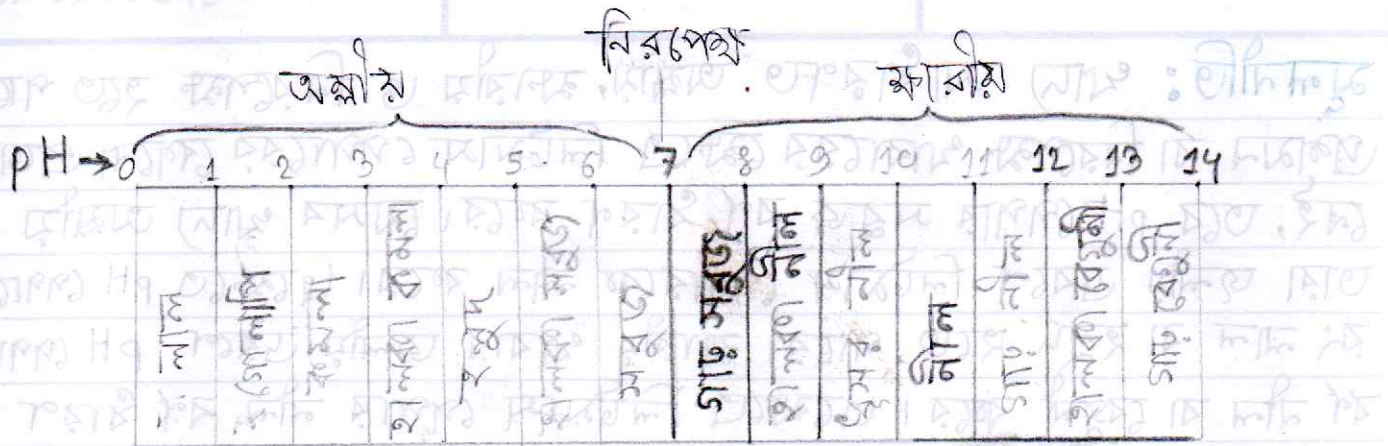 নিরপেক্ষ
অম্লীয় ক্ষারীয়
pH → 0 1 2 3 4 5 6 7 8 9 10 11 12 13 14
লাল গোলাপি কমলা হালকা কমলা হলুদ হালকা সবুজ সবুজ গাঢ় সবুজ হালকা নীল ধূসর নীল নীল গাঢ় নীল হালকা বেগুনী গাঢ় বেগুনী